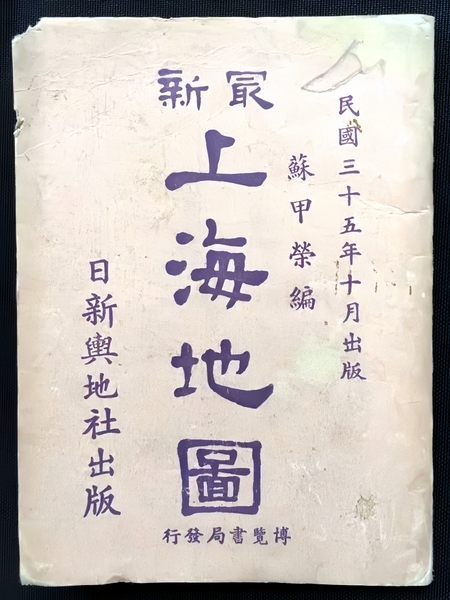 民國三十五年十月出版
蘇甲榮編
最新
上海地圖
博覽書局發行
日新輿地社出版